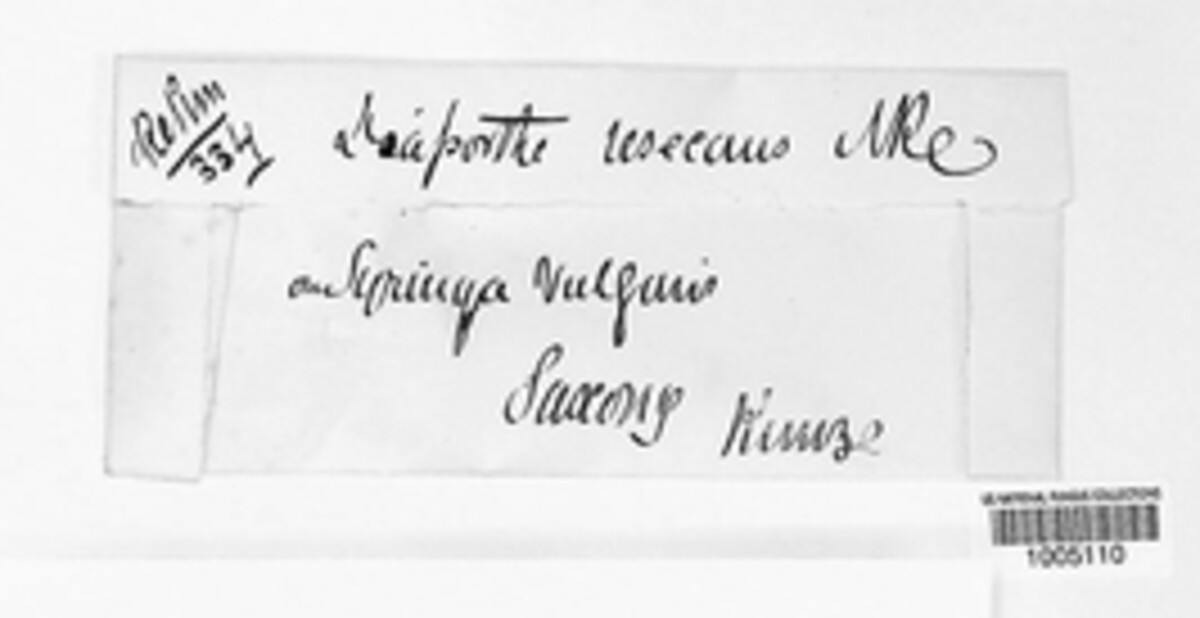 Rehm
334
Diaporthe resecans NKe
on Syringa vulgaris
Saxony Kunze
US NATIONAL FUNGUS COLLECTIONS
1005110